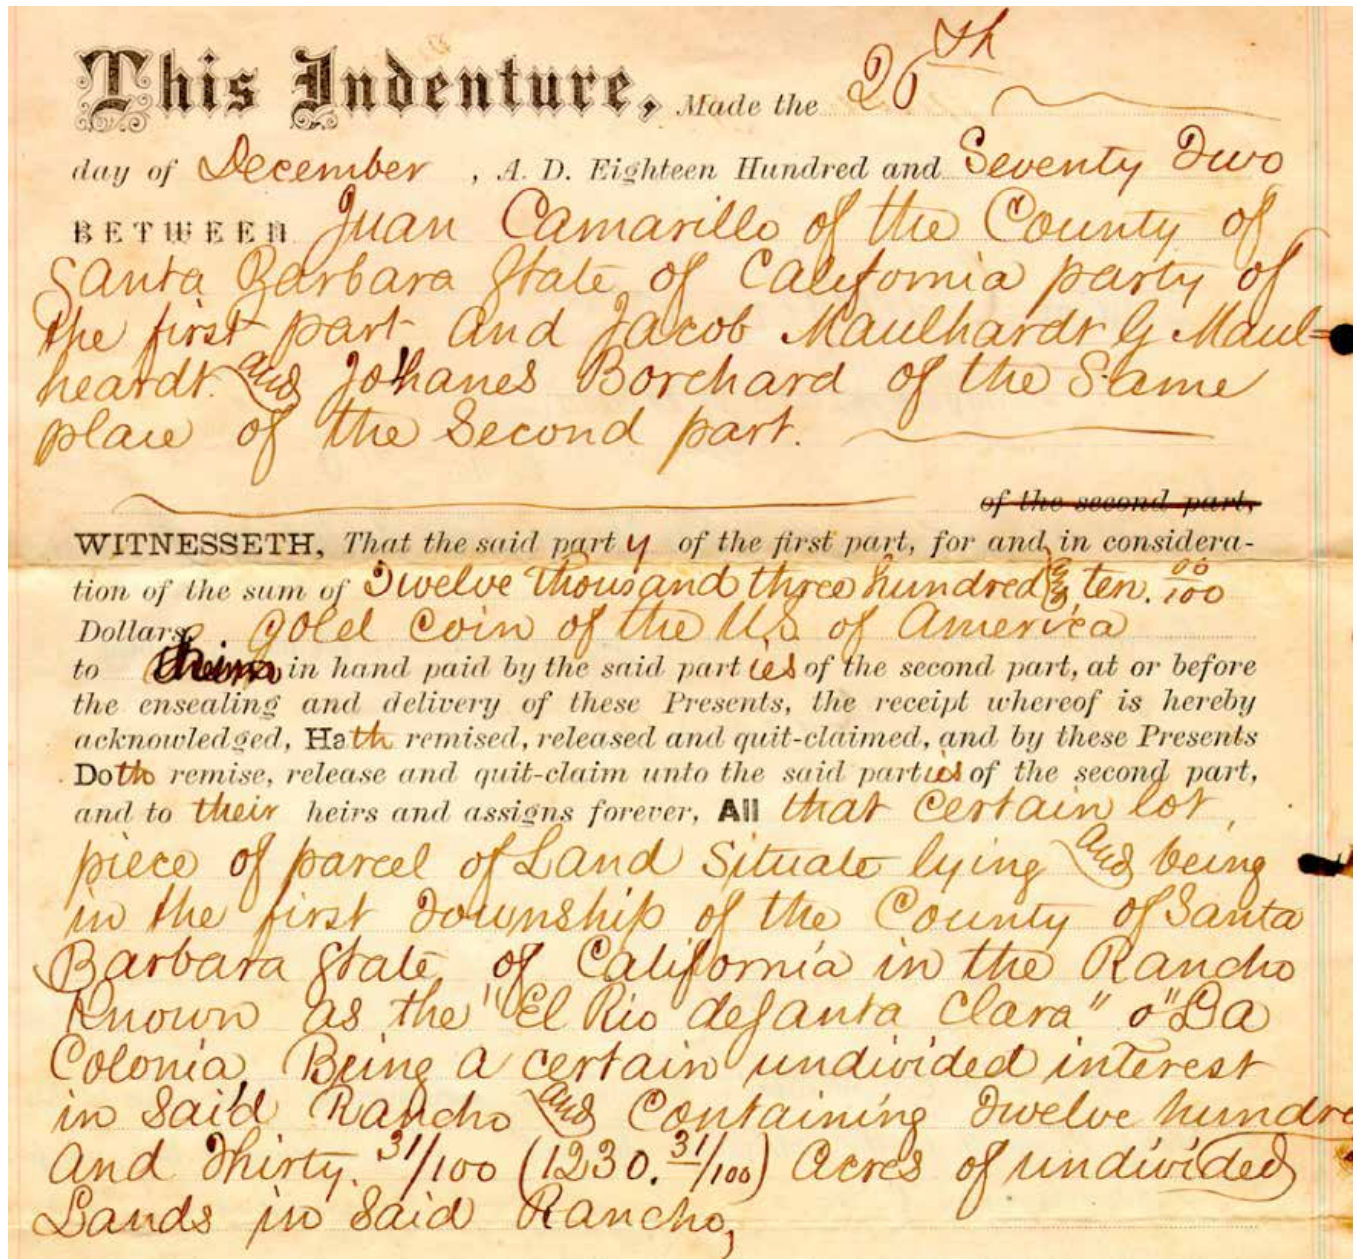 This Indenture, Made the 26th
day of December, A. D. Eighteen Hundred and Seventy Two
BETWEEN Juan Camarillo of the County of
Santa Barbara State of California party of
the first part and Jacob Maulhardt G Maul=
heardt. and Johanes Borchard of the Same
place of the Second part.
of the second part,
WITNESSETH, That the said party of the first part, for and in considera-
tion of the sum of Twelve thousand three hundred & ten. 00/100
Dollars. gold coin of the U.S. of America
to in hand paid by the said parties of the second part, at or before
the ensealing and delivery of these Presents, the receipt whereof is hereby
acknowledged, Hath remised, released and quit-claimed, and by these Presents
Doth remise, release and quit-claim unto the said parties of the second part,
and to their heirs and assigns forever, All that certain lot,
piece of parcel of Land Situate lying and being
in the first Township of the County of Santa
Barbara State of California in the Rancho
Known as the "El Rio de Santa Clara" o "La
Colonia, Being a certain undivided interest
in Said Rancho and Containing Twelve hundre
and Thirty. 31/100 (1230. 31/100) Acres of undivided
Lands in Said Rancho,